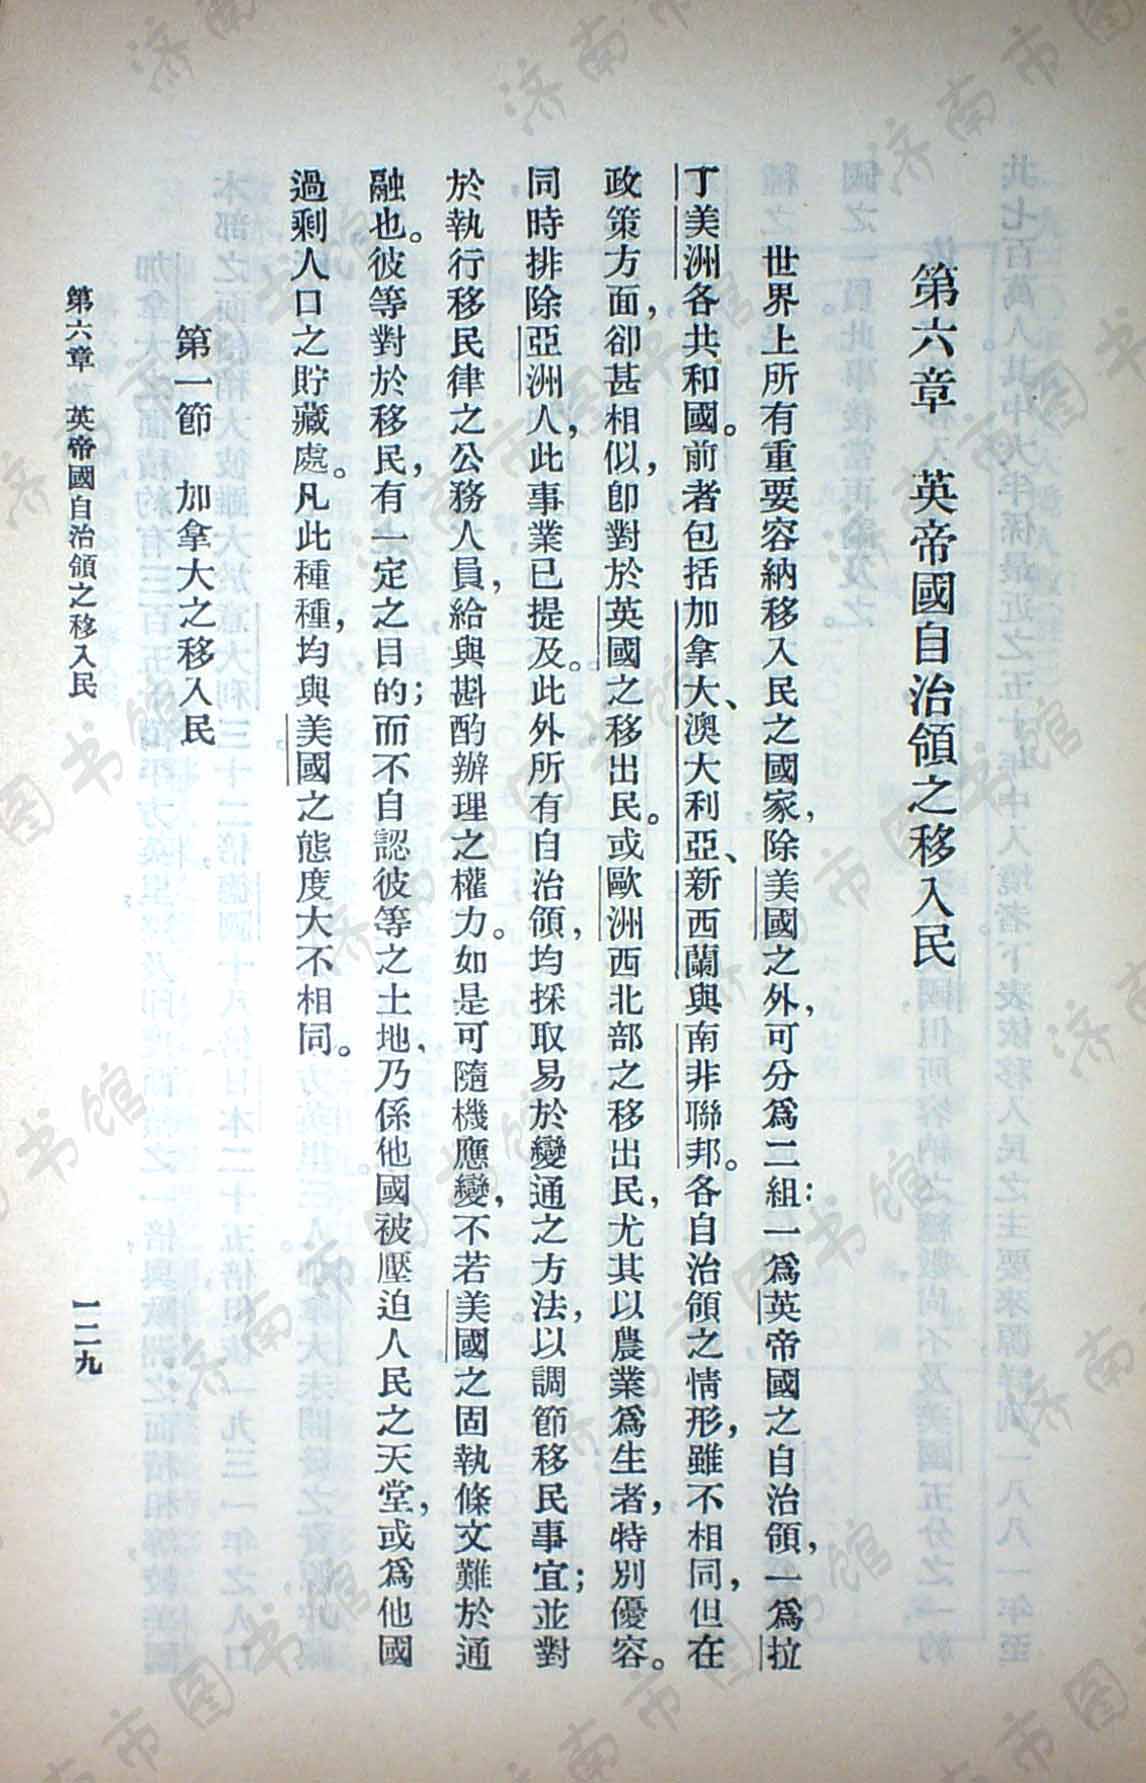 第六章　英帝國自治領之移入民
世界上所有重要容納移入民之國家，除美國之外，可分爲二組：一爲英帝國之自治領，一爲拉
丁美洲各共和國。前者包括加拿大、澳大利亞、新西蘭與南非聯邦。各自治領之情形，雖不相同，但在
政策方面，卻甚相似，卽對於英國之移出民。或歐洲西北部之移出民，尤其以農業爲生者，特別優容。
同時排除亞洲人，此事業已提及。此外所有自治領，均採取易於變通之方法，以調節移民事宜；並對
於執行移民律之公務人員，給與斟酌辦理之權力。如是可隨機應變，不若美國之固執條文難於通
融也。彼等對於移民，有一定之目的；而不自認彼等之土地，乃係他國被壓迫人民之天堂，或爲他國
過剩人口之貯藏處。凡此種種，均與美國之態度大不相同。
第一節　加拿大之移入民
第六章　英帝國自治領之移入民
一二九
济南市图书馆